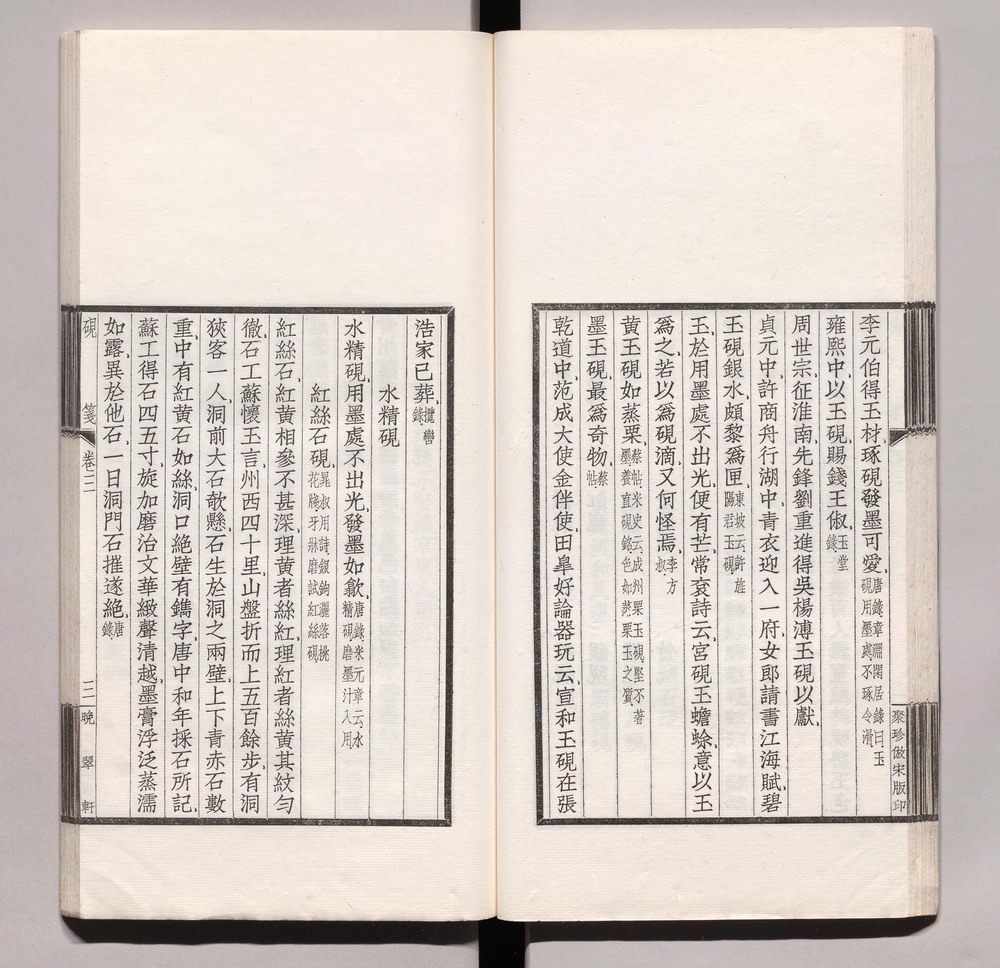 李元伯得玉材琢硯發墨可愛唐錄章淵閑居錄曰玉硯用墨處不琢令滑
雍熙中以玉硯賜錢王俶玉堂錄
周世宗征淮南先鋒劉重進得吳楊溥玉硯以獻
貞元中許商舟行湖中青衣迎入一府女郎請書江海賦碧
玉硯銀水頗黎爲匣東坡云許旌陽君玉硯
玉於用墨處不出光便有芒常袞詩云宮硯玉蟾蜍意以玉
爲之若以爲硯滴又何怪焉李方叔
黃玉硯如蒸栗蔡帖米史云成州栗玉硯堅不著墨養直硯銘色如蒸栗玉之質
墨玉硯最爲奇物蔡帖
乾道中范成大使金伴使田皐好論器玩云宣和玉硯在張
聚珍倣宋版印
浩家已葬攬轡錄
水精硯
水精硯用墨處不出光發墨如歙唐錄米元章云水精硯磨墨汁入用
紅絲石硯晁叔用詩銀鉤灑落桃花牋牙牀磨試紅絲硯
紅絲石紅黃相參不甚深理黃者絲紅理紅者絲黃其紋勻
徹石工蘇懷玉言州西四十里山盤折而上五百餘步有洞
狹客一人洞前大石欹懸石生於洞之兩壁上下青赤石數
重中有紅黃石如絲洞口絶壁有鐫字唐中和年採石所記
蘇工得石四五寸旋加磨治文華緻聲清越墨膏浮泛蒸濡
如露異於他石一日洞門石摧遂絶唐錄
硯箋 卷三 三 晚翠軒